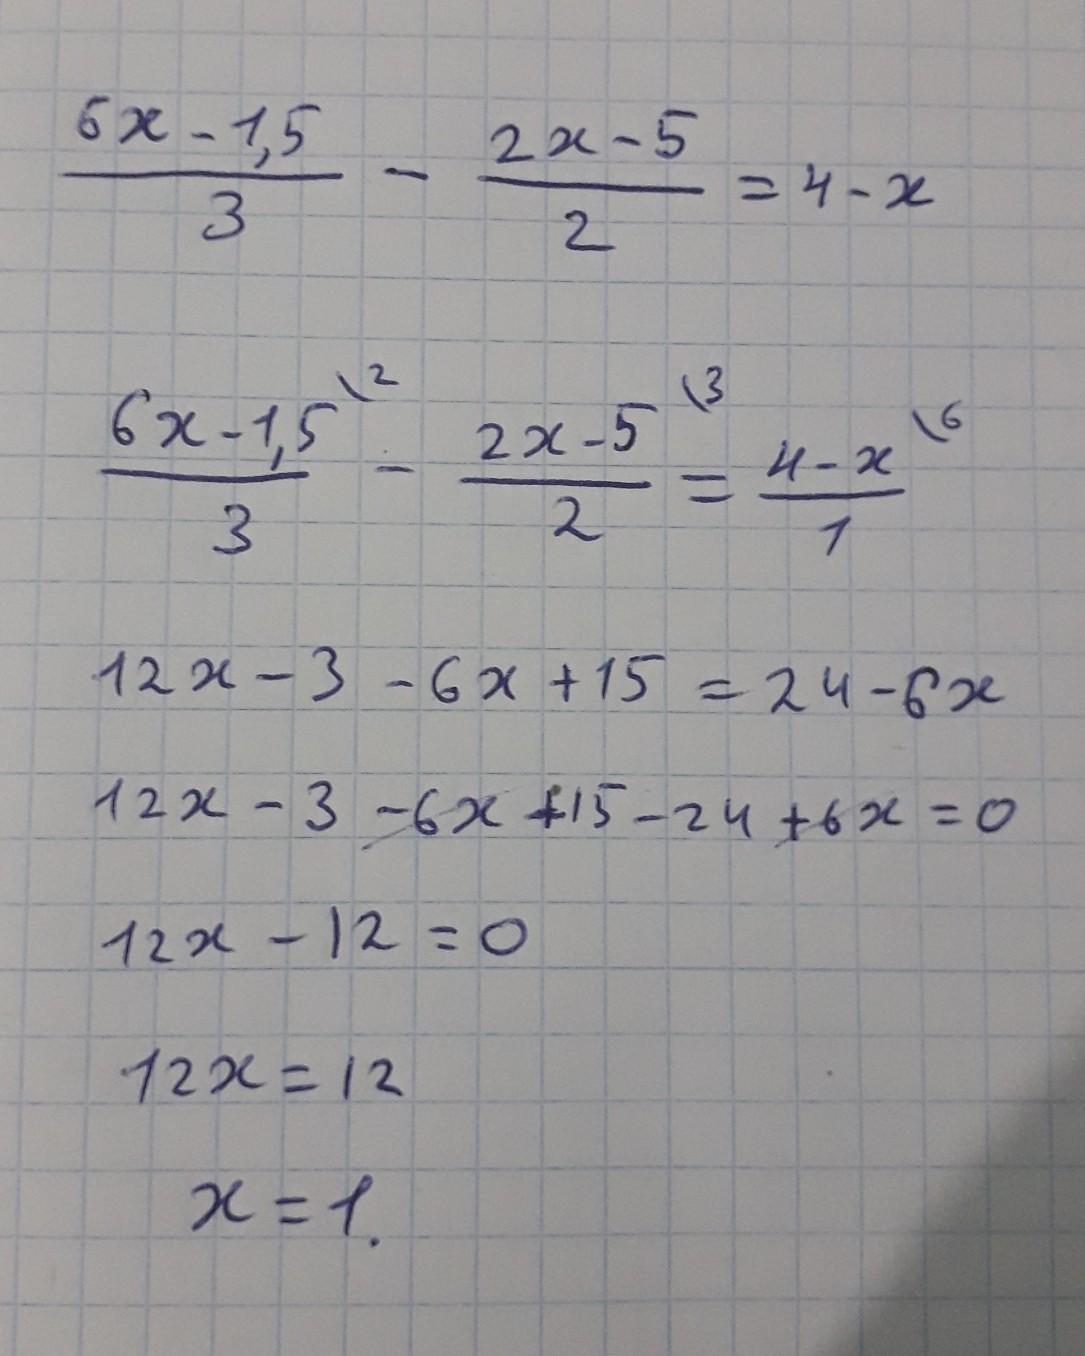 6x - 1,5 / 3 - 2x - 5 / 2 = 4 - x
6x - 1,5 \2 / 3 - 2x - 5 \3 / 2 = 4 - x \6 / 1
12x - 3 - 6x + 15 = 24 - 6x
12x - 3 - 6x + 15 - 24 + 6x = 0
12x - 12 = 0
12x = 12
x = 1.